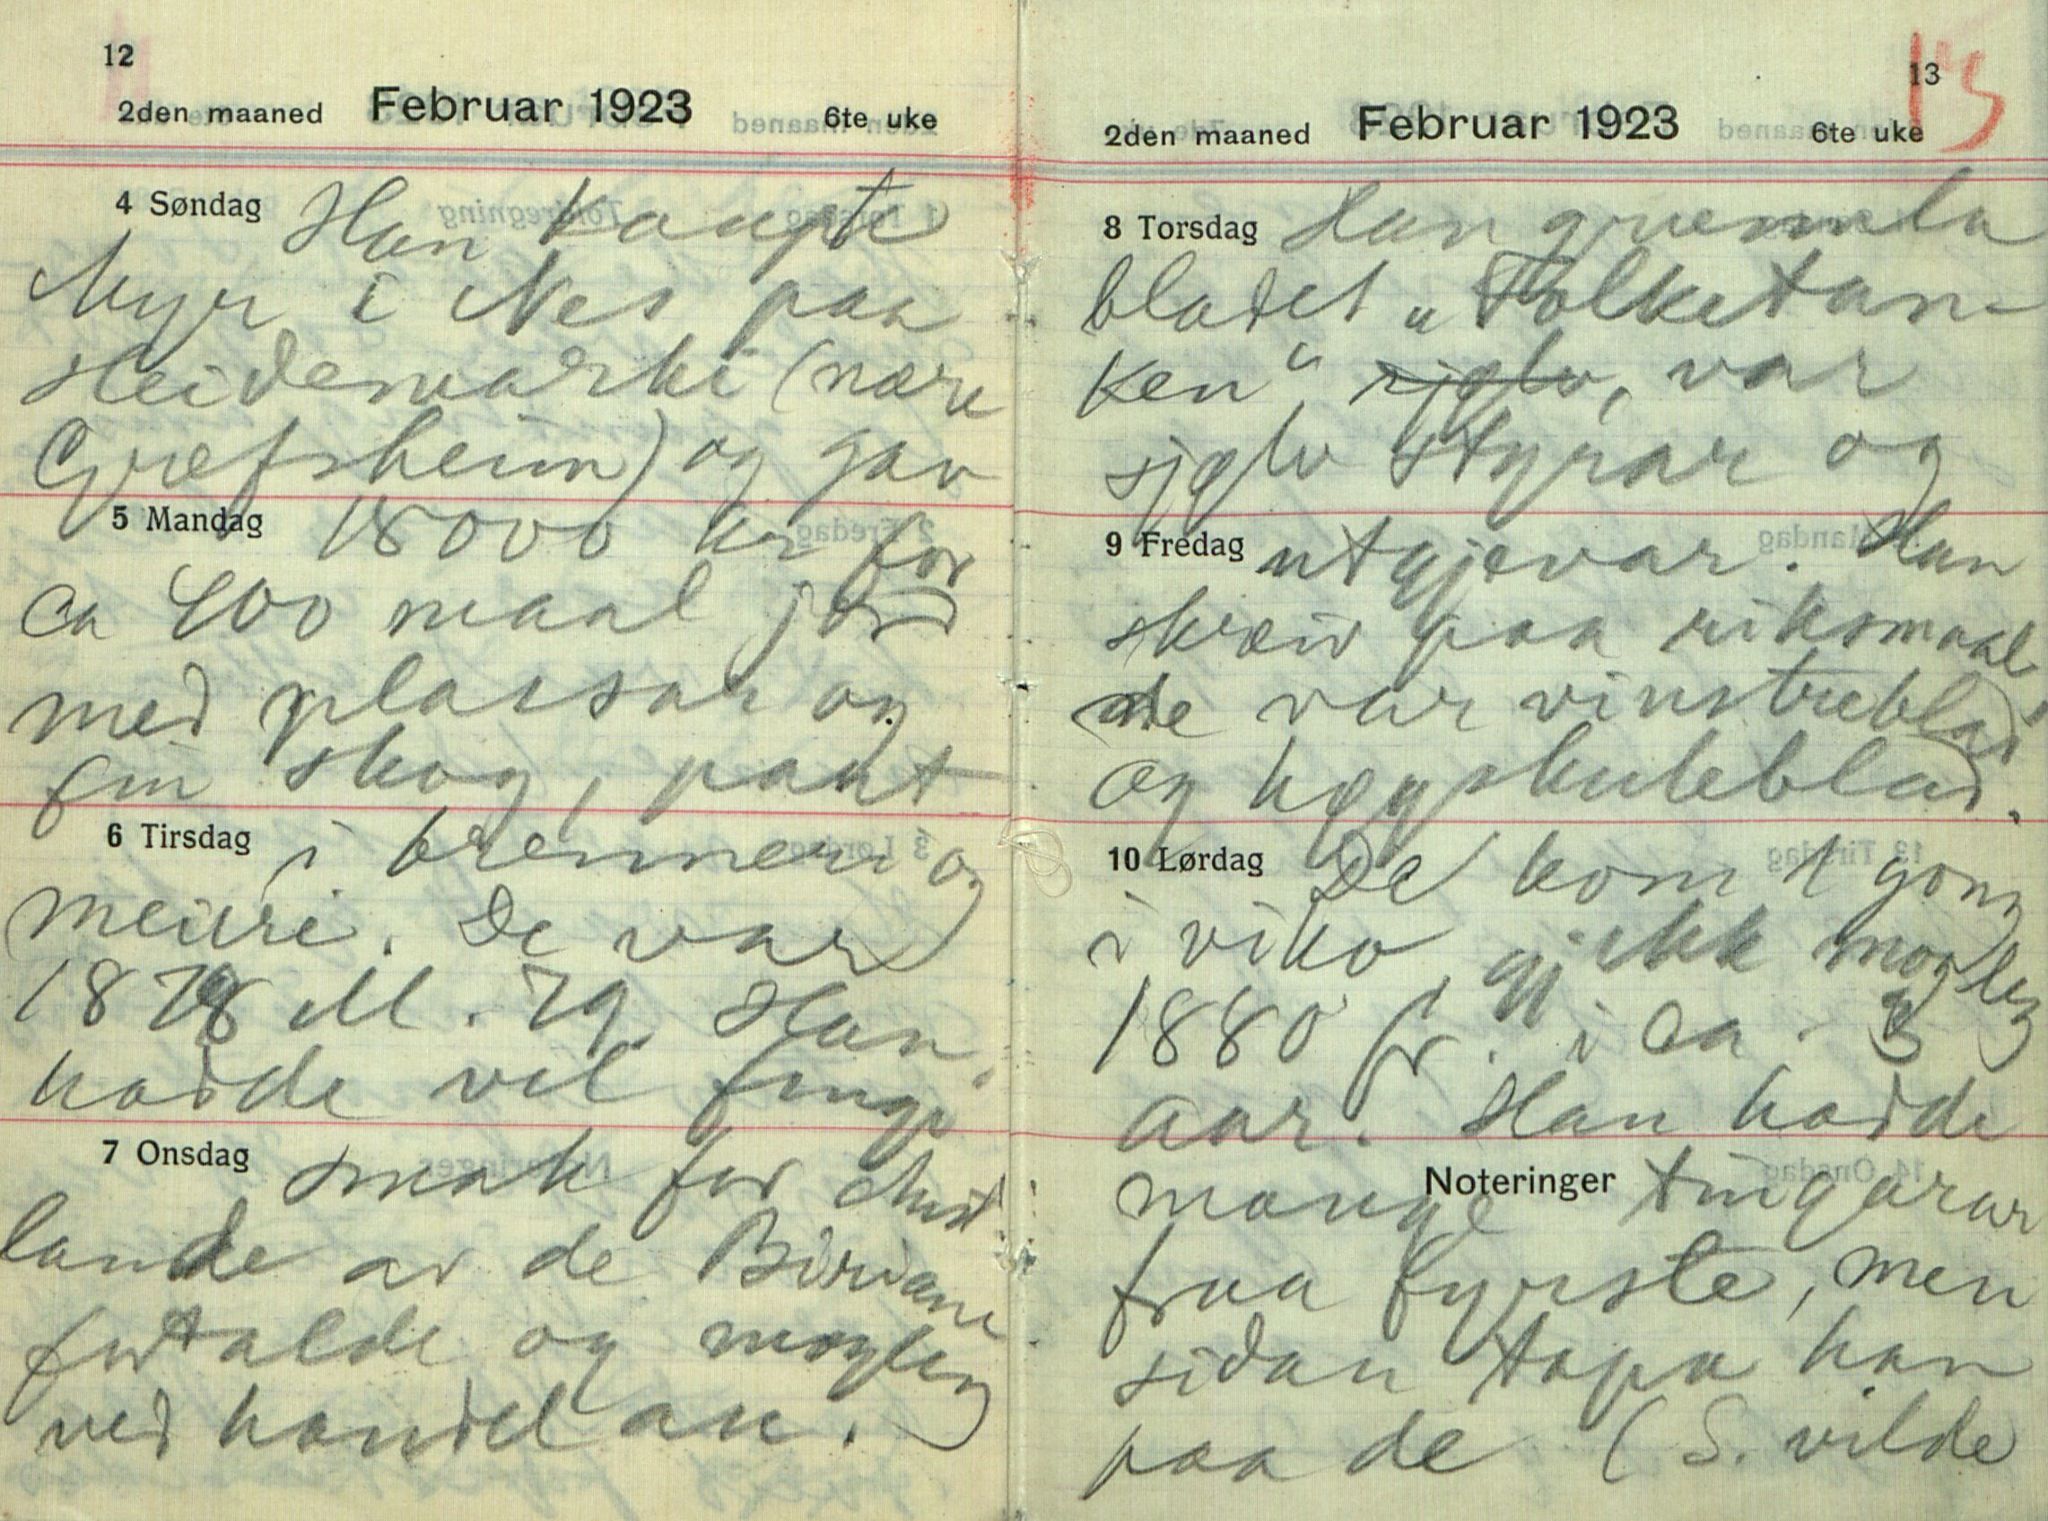 12
2den maaned Februar 1923 6te uke
4 Søndag Han kaupte
Myr i Nes paa
Heidemarki (nære
Græfsheim) og gav
5 Mandag 18000 kr for
ca 400 maal jord
med plassar og
fin skog, part
6 Tirsdag i brenneri og
meieri. De var
1878 M. 79. Han
hadde vel finge
7 Onsdag smak for
lande av de Biriane
fortalde og
ved handelan.
13
15
2den maaned Februar 1923 6te uke
8 Torsdag Han grunnla
bladet „Folketan-
ken" sjølv, var
sjølv styrar og
9 Fredag utgjevar. Han
skreiv paa riksmaal
de var vinstreblad
og høgskuleblad.
10 Lørdag De kom 1 gong
i viko, gjekk
1880 fr. i ca. 3
aar. Han hadde
Noteringer mange tingarar
fraa fyrste, men
sidan tapa han
paa de (S. vilde